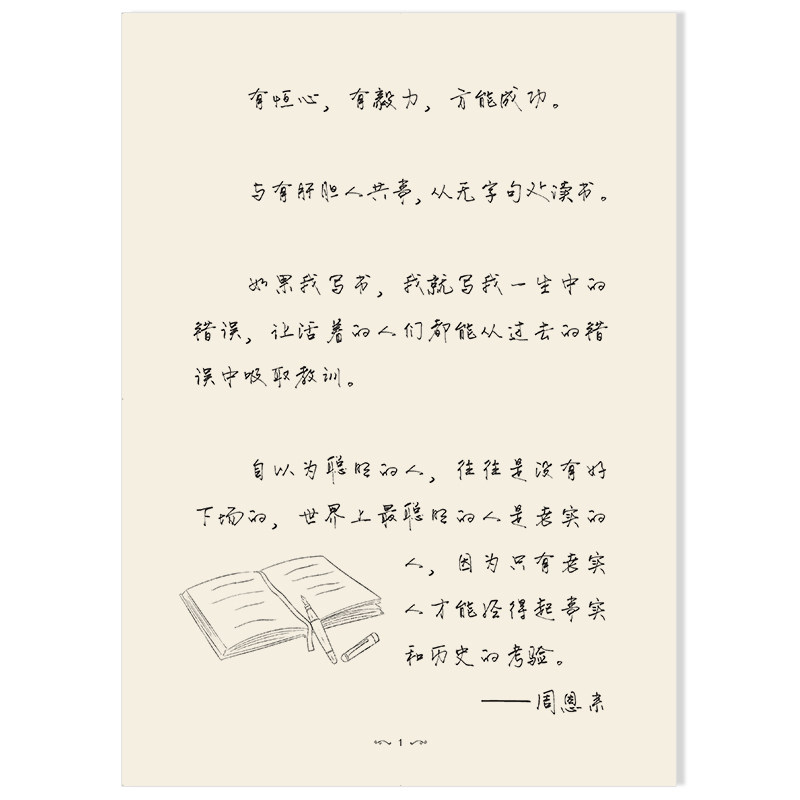 有恒心，有毅力，方能成功。
与有肝胆人共事，从无字句处读书。
如果我写书，我就写我一生中的
错误，让活着的人们都能从过去的错
误中吸取教训。
自以为聪明的人，往往是没有好
下场的，世界上最聪明的人是老实的
人，因为只有老实
人才能经得起事实
和历史的考验。
——周恩来
1